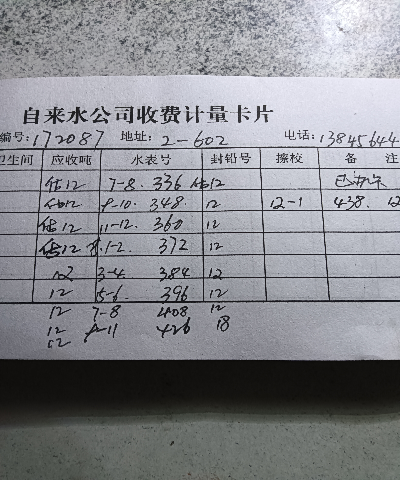 自来水公司收费计量卡片
编号:172087 地址:2-602 电话:13845644
卫生间 应收吨 水表号 封铅号 擦校 备 注
估12 7-8. 336 估12
估12 9-10. 348. 12 12-1 438. 12
估12 11-12. 360 12
估12 1-2. 372 12
12 3-4 384 12
12 5-6. 396 12
12 7-8 408 12
12 9-11 426 18
12